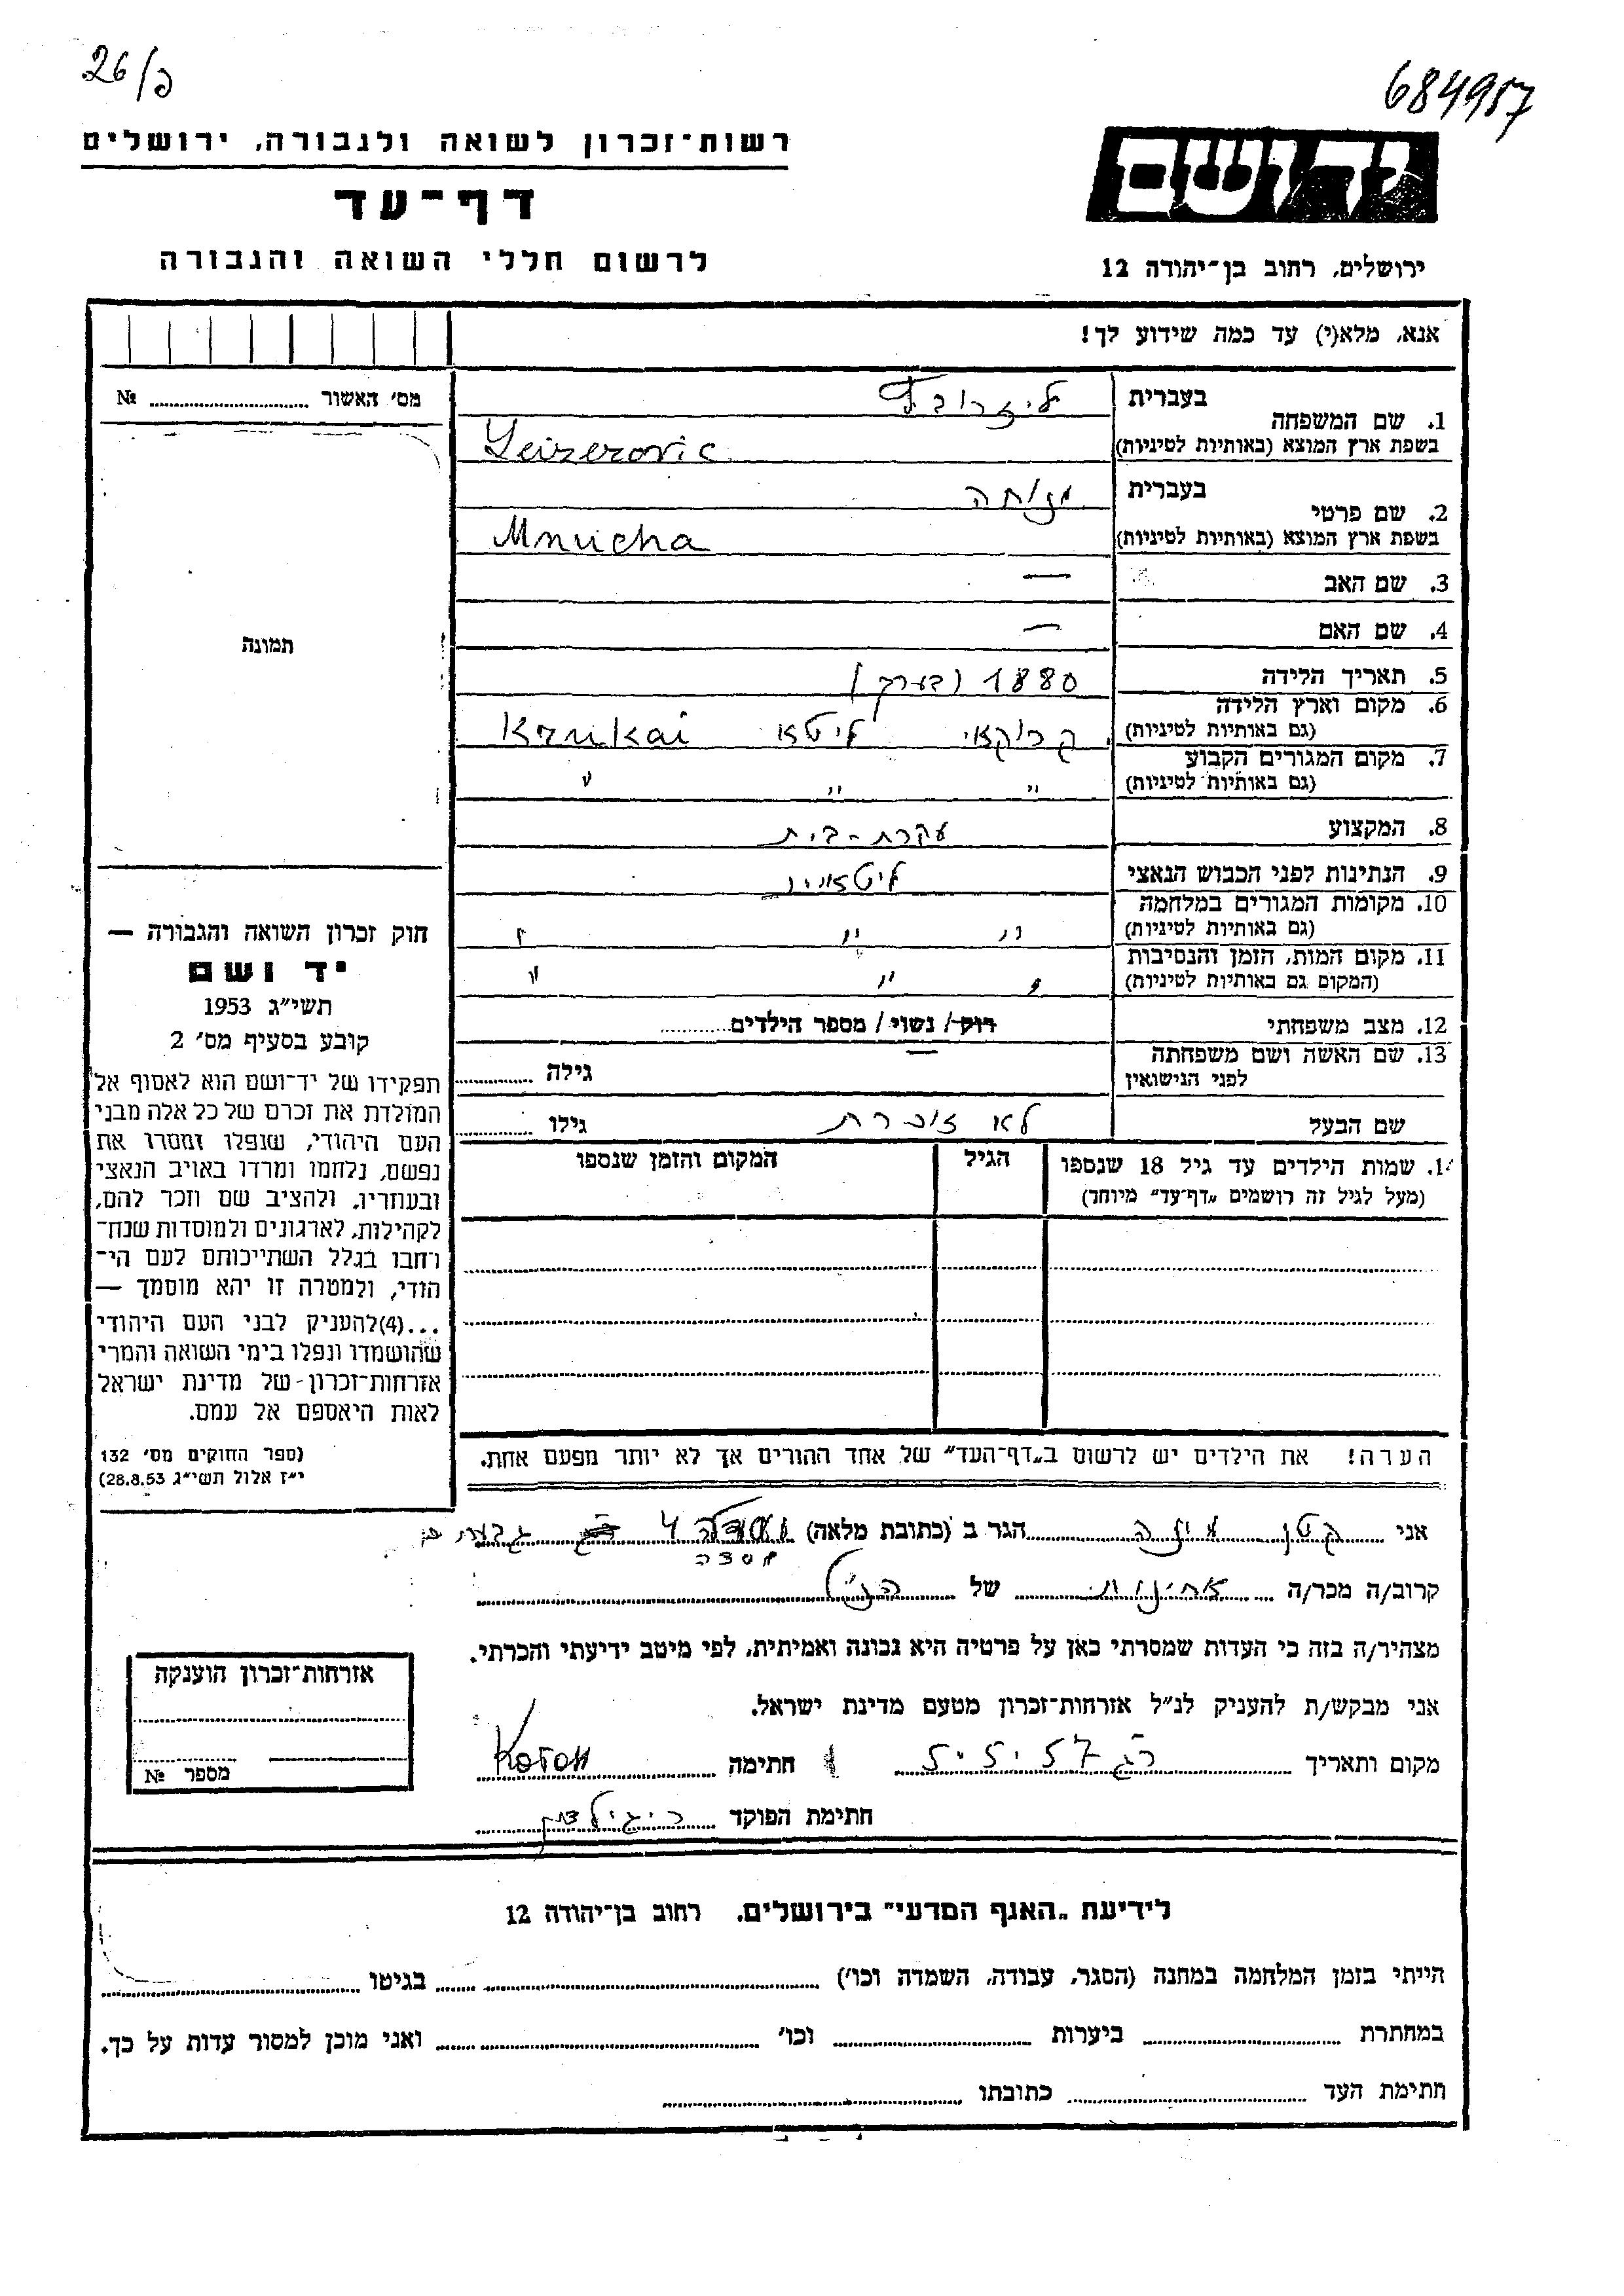 26/פ
684957
רשות-זכרון לשואה ולגבורה, ירושלים
דף-עד
לרשום חללי השואה והגבורה
יד ושם
ירושלים, רחוב בן-יהודה 12
אנא, מלא(י) עד כמה שידוע לך!
מס' האשור № 
תמונה
חוק זכרון השואה והגבורה —
יד ושם
תשי"ג 1953
קובע בסעיף מס' 2
תפקידו של יד-ושם הוא לאסוף אל
המולדת את זכרם של כל אלה מבני
העם היהודי, שנפלו ומסרו את
נפשם, נלחמו ומרדו באויב הנאצי
ובעוזריו, ולהציב שם וזכר להם,
לקהילות, לארגונים ולמוסדות שנח-
רחבו בגלל השתייכותם לעם הי-
הודי, ולמטרה זו יהא מוסמך —
...(4)להעניק לבני העם היהודי
שהושמדו ונפלו בימי השואה והמרי
אזרחות-זכרון של מדינת ישראל
לאות היאספם אל עמם.
(ספר החוקים מס' 132
י"ז אלול תשי"ג 28.8.53)
בעברית
1. שם המשפחה
בשפת ארץ המוצא (באותיות לטיניות) Leizerovic
2. שם פרטי
בעברית מנוחה
בשפת ארץ המוצא (באותיות לטיניות) Mnucha
3. שם האב —
4. שם האם —
5. תאריך הלידה 1880 (בערך)
6. מקום וארץ הלידה
(גם באותיות לטיניות) קרוקאי ליטא Krukai
7. מקום המגורים הקבוע
(גם באותיות לטיניות) " " "
8. המקצוע עקרת-בית
9. הנתינות לפני הכבוש הנאצי ליטאית
10. מקומות המגורים במלחמה
(גם באותיות לטיניות) " " "
11. מקום המות, הזמן והנסיבות
(המקום גם באותיות לטיניות) " " "
12. מצב משפחתי רוק / נשוי / מספר הילדים
13. שם האשה ושם משפחתה
לפני הנישואין — גילה
שם הבעל לא זוכרת גילו
14. שמות הילדים עד גיל 18 שנספו הגיל המקום והזמן שנספו
(מעל לגיל זה רושמים "דף-עד" מיוחד)
הערה! את הילדים יש לרשום ב"דף-העד" של אחד ההורים אך לא יותר מפעם אחת.
אני קטן הגר ב (כתובת מלאה) 4 גבעתים
מסדה
קרוב/ה מכר/ה אחינות של הנ"ל
מצהיר/ה בזה כי העדות שמסרתי כאן על פרטיה היא נכונה ואמיתית, לפי מיטב ידיעתי והכרתי.
אני מבקש/ת להעניק לנ"ל אזרחות-זכרון מטעם מדינת ישראל.
מקום ותאריך רג 5.5.57 חתימה
חתימת הפוקד
אזרחות-זכרון הוענקה
מספר №
לידיעת "האגף המדעי" בירושלים, רחוב בן-יהודה 12
הייתי בזמן המלחמה במחנה (הסגר, עבודה, השמדה וכו') בגיטו
במחתרת ביערות וכו' ואני מוכן למסור עדות על כך.
חתימת העד כתובתו